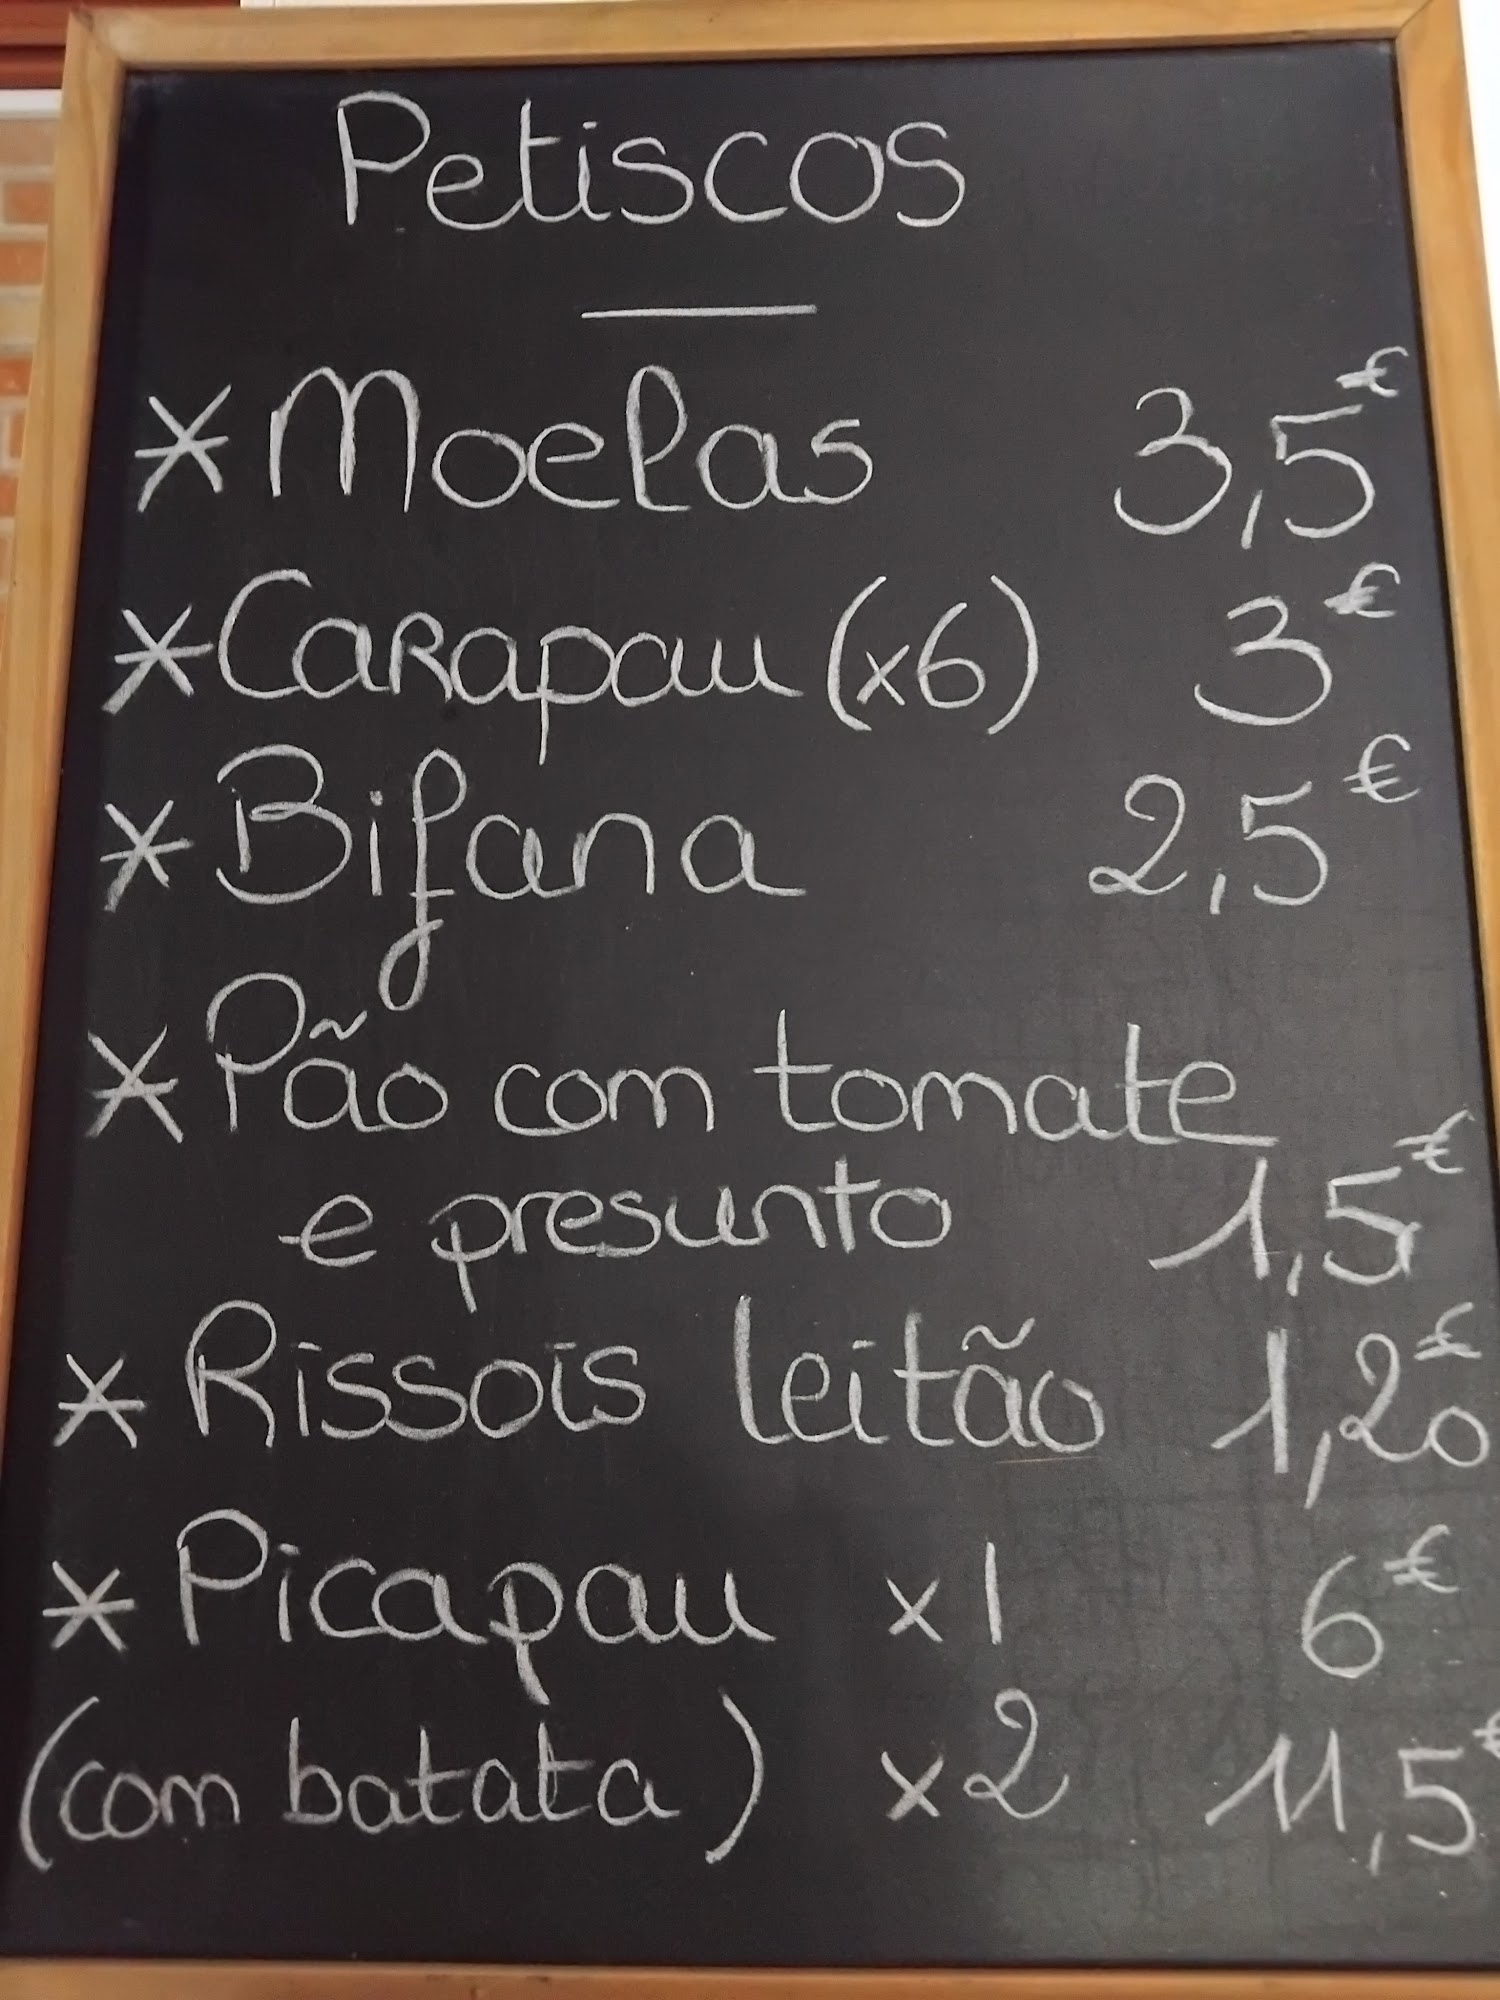 Petiscos
* Moelas 3,5€
* Carapau (x6) 3€
* Bifana 2,5€
* Pão com tomate
e presunto 1,5€
* Rissois leitão 1,20€
* Picapau x1 6€
(com batata) x2 11,5€